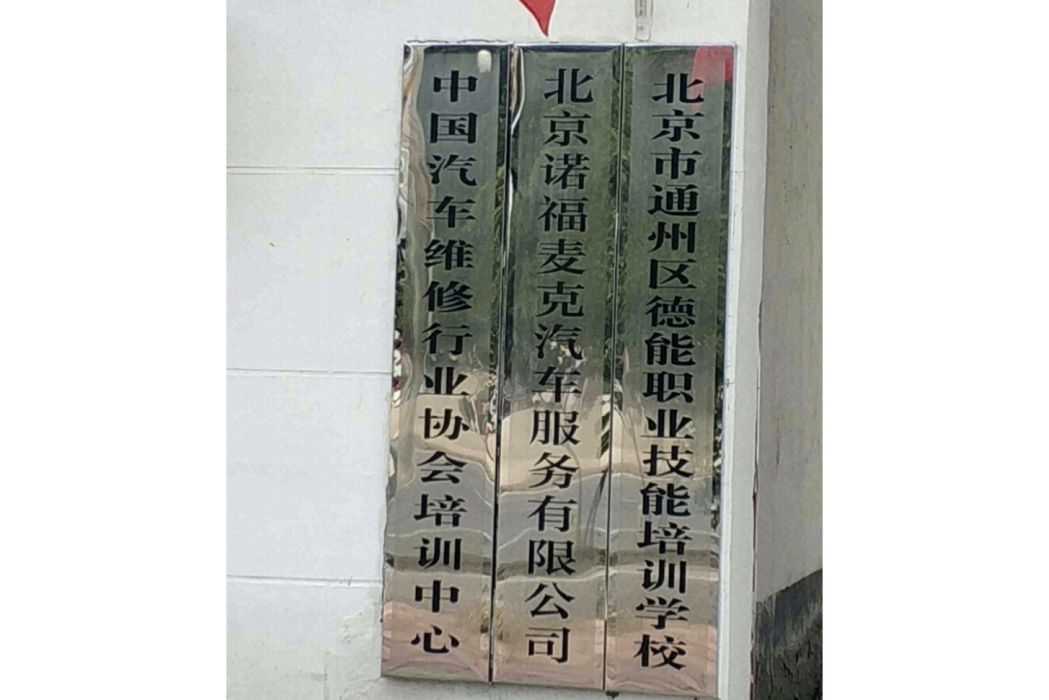 北京市通州区德能职业技能培训学校
北京诺福麦克汽车服务有限公司
中国汽车维修行业协会培训中心